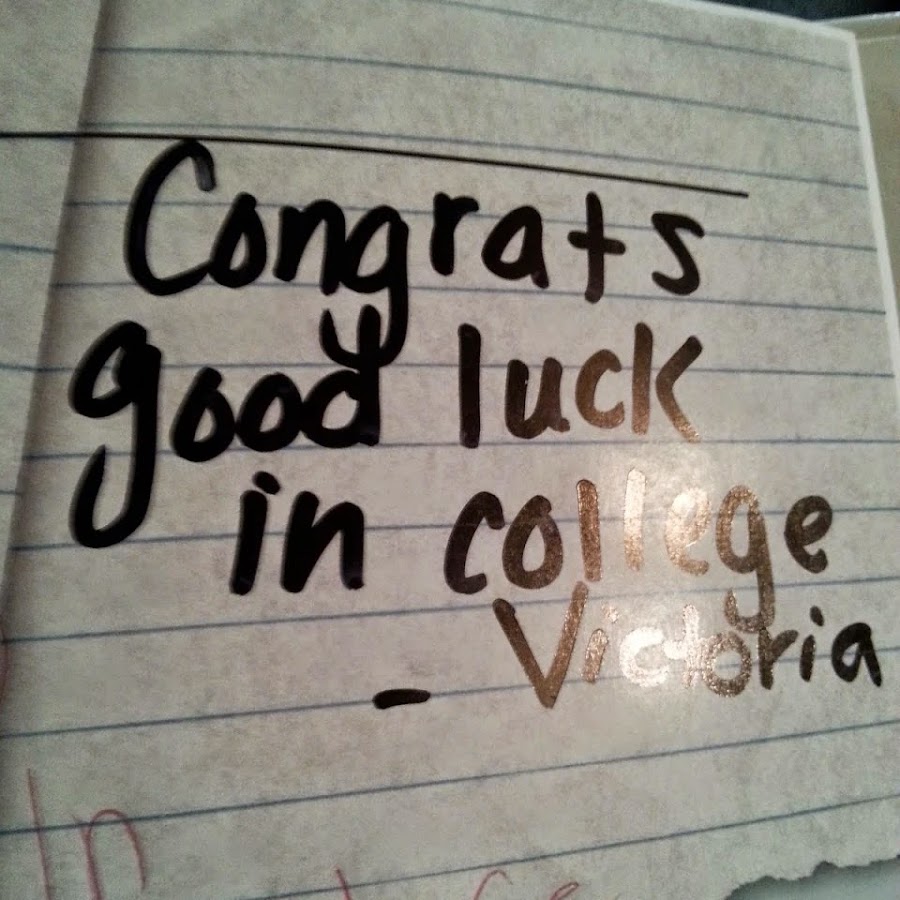 Congrats
good luck
in college
- Victoria
In